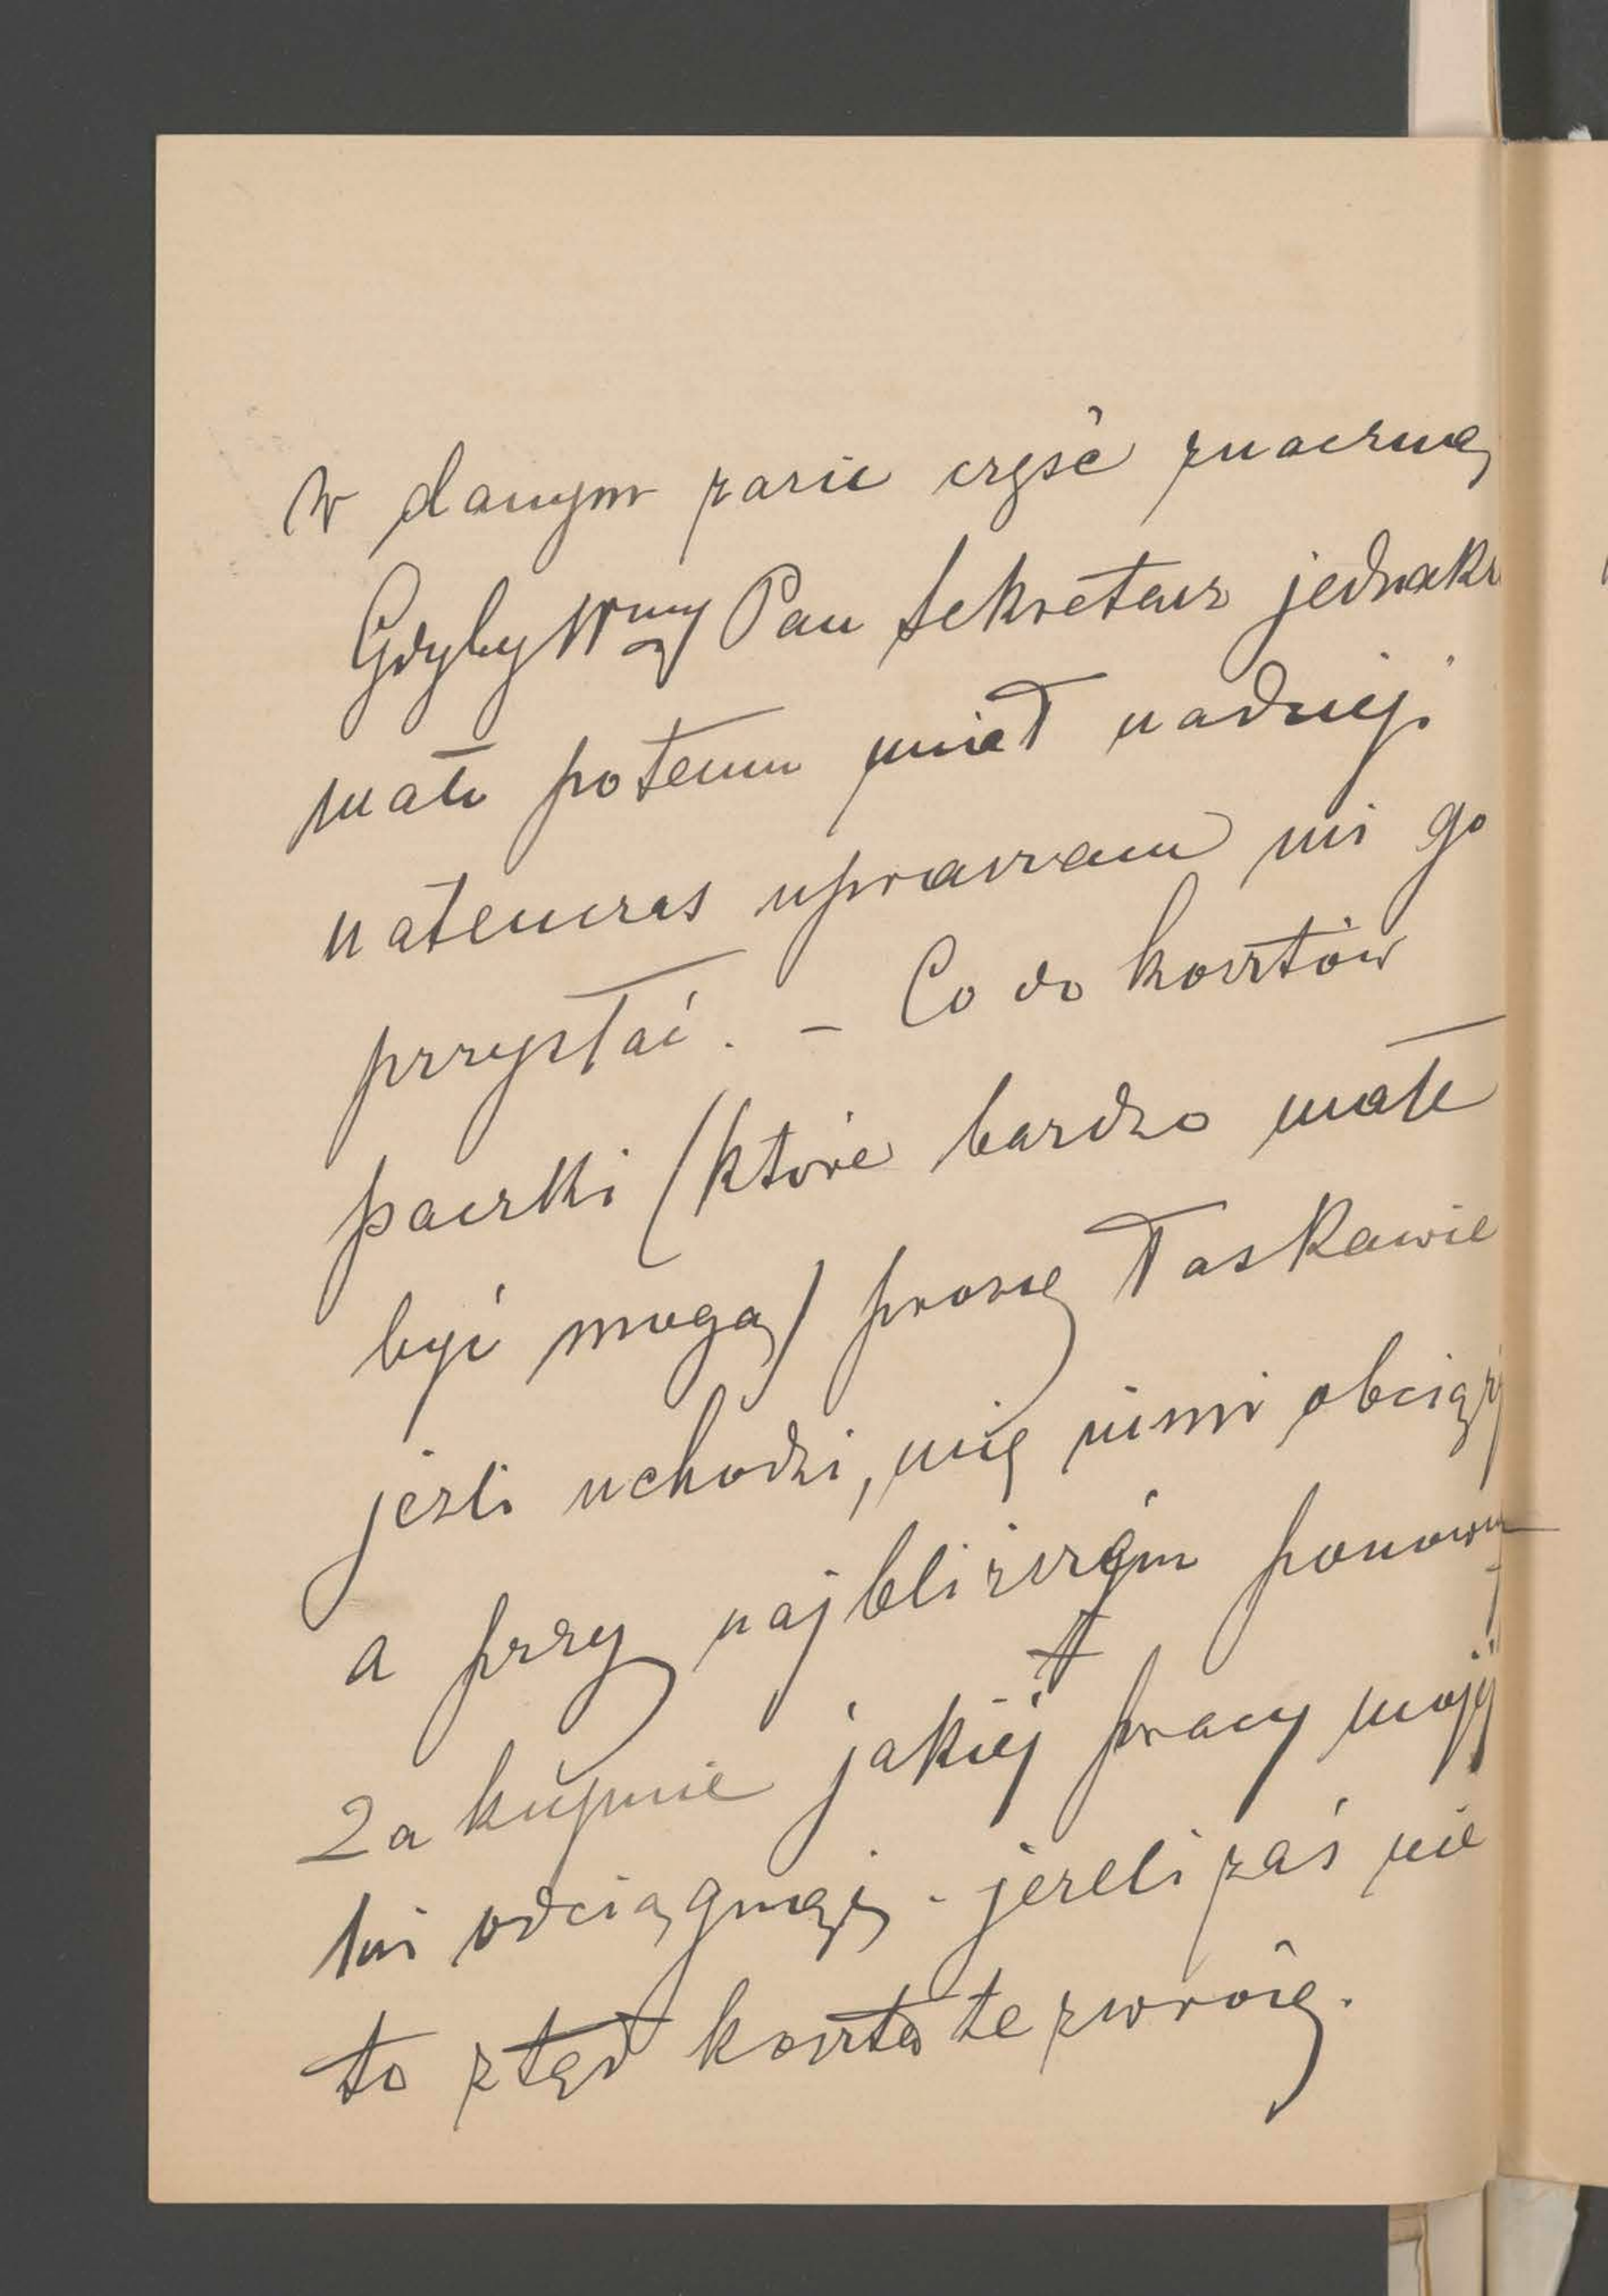 w danym razie część znaczną
Gdyby Wny Pan Sekretarz jednakż
mało potemu miał nadzieji
natenczas upraszam mi go
przysłać. – Co do kosztów
paczki (które bardzo małe
być mogą) proszę łaskawie
jeśli uchodzi, mię nimi obciąży
a przy najbliższém ponown
zakupnie jakiéj pracy mojéj
mi odciągnąć, – jeżeli zaś nie
to ztąd koszta te zwrócę.